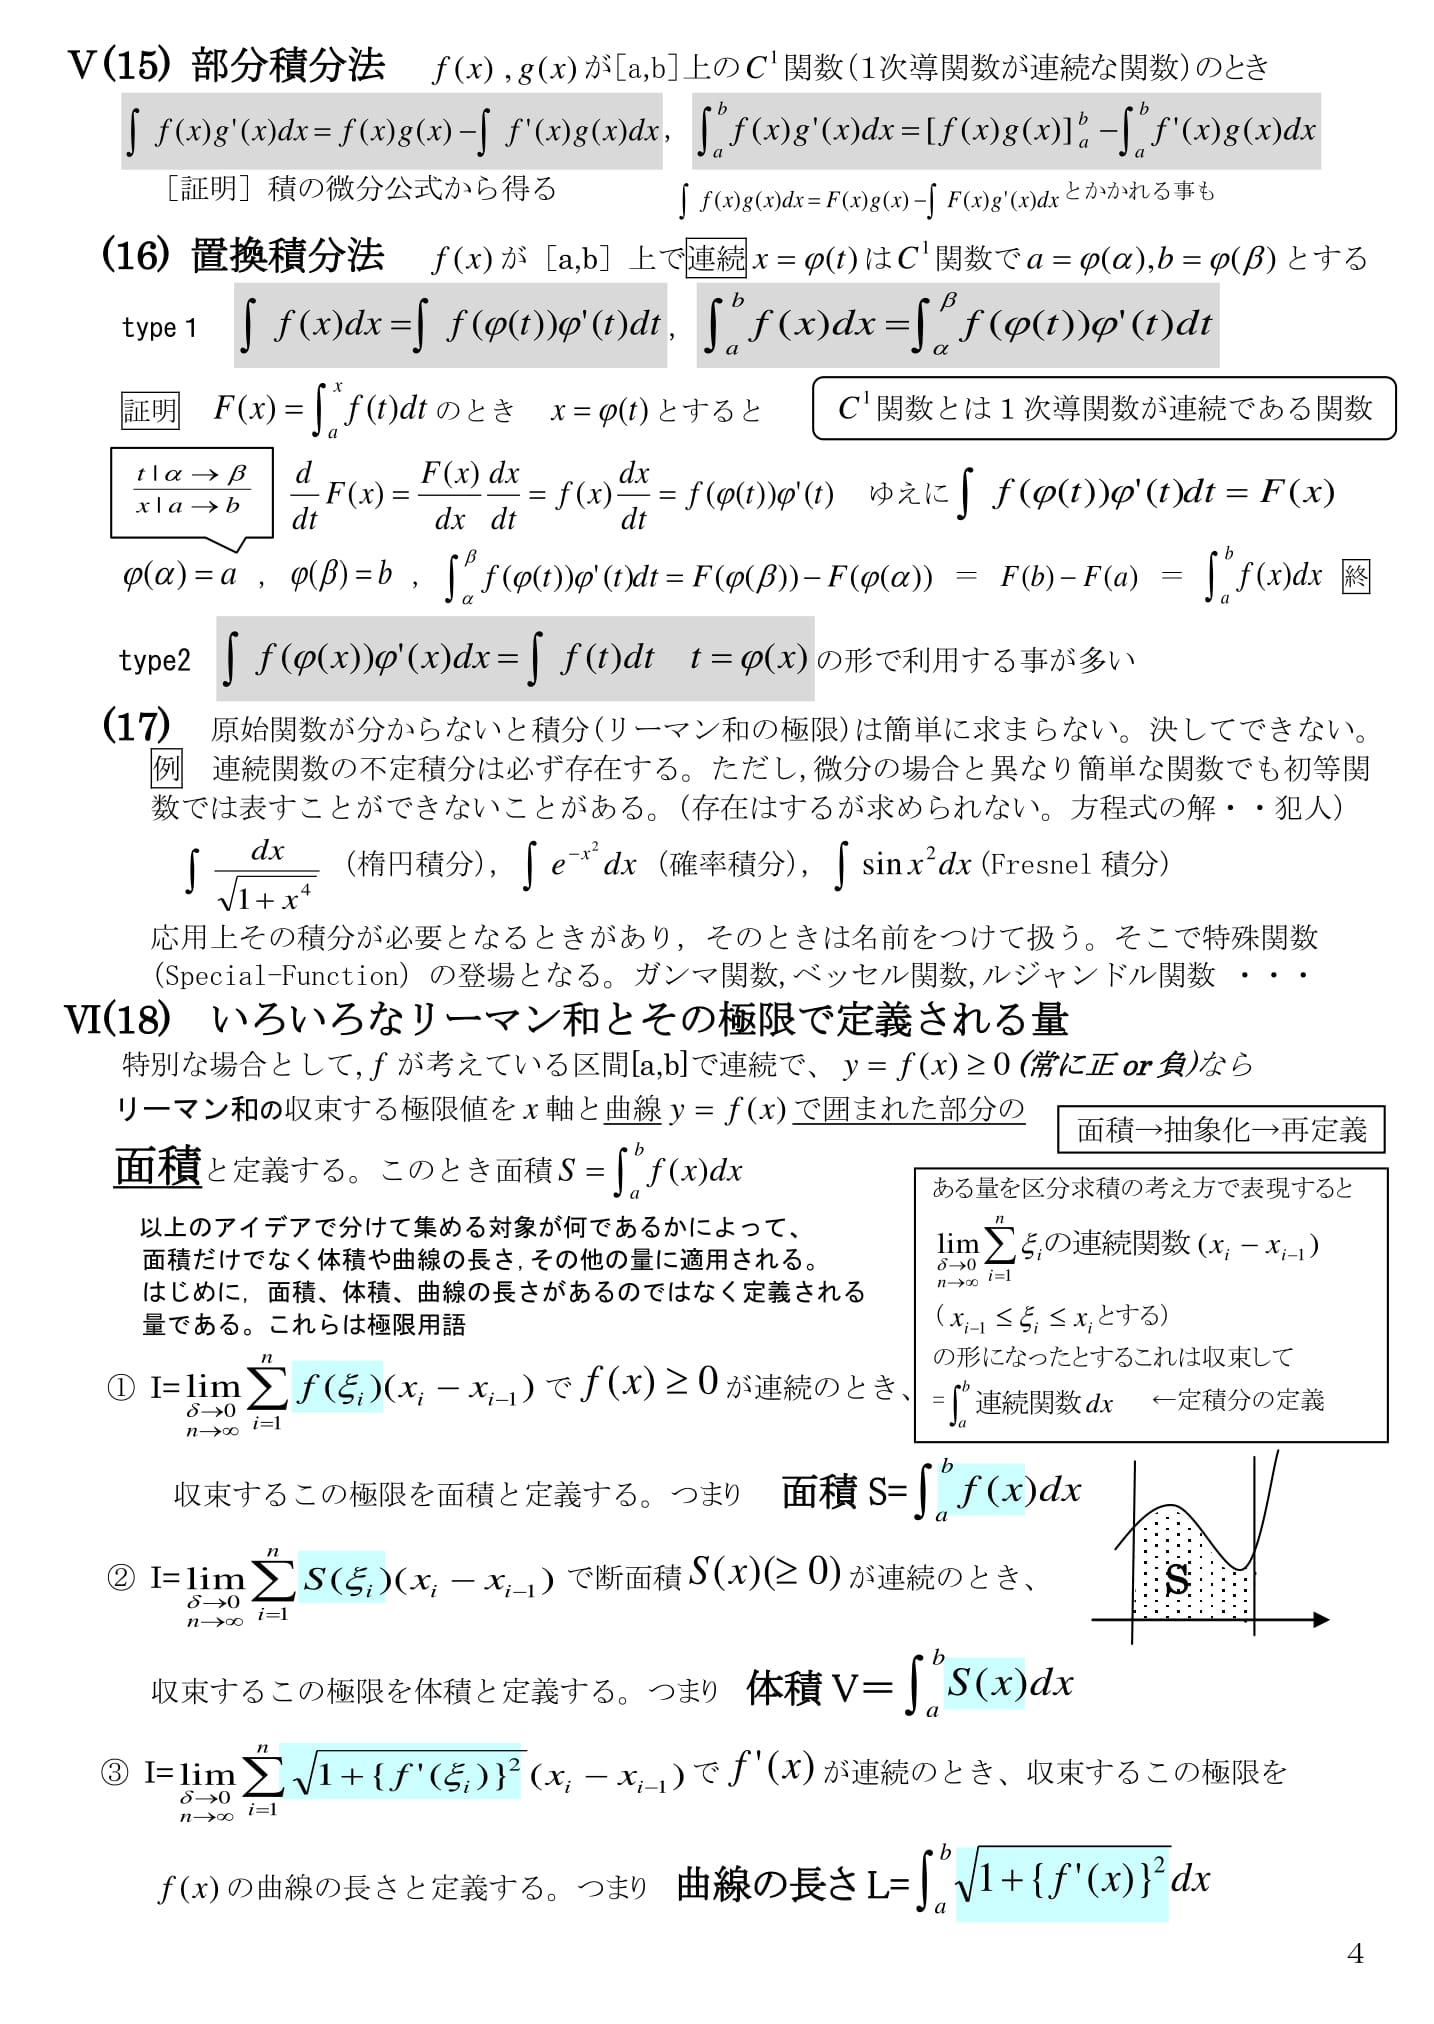 Ⅴ(15) 部分積分法　f(x) , g(x)が[a,b]上のC¹関数(1次導関数が連続な関数)のとき
∫ f(x)g'(x)dx = f(x)g(x) − ∫ f'(x)g(x)dx， ∫_a^b f(x)g'(x)dx = [f(x)g(x)]_a^b − ∫_a^b f'(x)g(x)dx
［証明］積の微分公式から得る　∫ f(x)g(x)dx = F(x)g(x) − ∫ F(x)g'(x)dx とかかれる事も
(16) 置換積分法　f(x)が［a,b］上で連続 x = φ(t)はC¹関数で a = φ(α), b = φ(β) とする
type 1　∫ f(x)dx = ∫ f(φ(t))φ'(t)dt， ∫_a^b f(x)dx = ∫_α^β f(φ(t))φ'(t)dt
証明　F(x) = ∫_a^x f(t)dt のとき　x = φ(t)とすると
C¹関数とは１次導関数が連続である関数
t | α → β
x | a → b
d/dt F(x) = F(x)/dx dx/dt = f(x) dx/dt = f(φ(t))φ'(t)　ゆえに ∫ f(φ(t))φ'(t)dt = F(x)
φ(α) = a ， φ(β) = b ， ∫_α^β f(φ(t))φ'(t)dt = F(φ(β)) − F(φ(α)) ＝ F(b) − F(a) ＝ ∫_a^b f(x)dx 終
type2　∫ f(φ(x))φ'(x)dx = ∫ f(t)dt　t = φ(x) の形で利用する事が多い
(17)　原始関数が分からないと積分(リーマン和の極限)は簡単に求まらない。決してできない。
例　連続関数の不定積分は必ず存在する。ただし,微分の場合と異なり簡単な関数でも初等関
数では表すことができないことがある。（存在はするが求められない。方程式の解・・犯人）
∫ dx/√(1 + x⁴)（楕円積分），∫ e^(−x²) dx（確率積分），∫ sin x² dx (Fresnel 積分)
応用上その積分が必要となるときがあり，そのときは名前をつけて扱う。そこで特殊関数
(Special-Function) の登場となる。ガンマ関数,ベッセル関数,ルジャンドル関数 ・・・
Ⅵ(18)　いろいろなリーマン和とその極限で定義される量
特別な場合として, f が考えている区間[a,b]で連続で、 y = f(x) ≥ 0 (常に正 or 負)なら
リーマン和の収束する極限値を x 軸と曲線 y = f(x) で囲まれた部分の
面積→抽象化→再定義
面積と定義する。このとき面積 S = ∫_a^b f(x)dx
以上のアイデアで分けて集める対象が何であるかによって、
面積だけでなく体積や曲線の長さ,その他の量に適用される。
はじめに，面積、体積、曲線の長さがあるのではなく定義される
量である。これらは極限用語
ある量を区分求積の考え方で表現すると
lim_{δ→0 n→∞} Σ_{i=1}^n ξᵢの連続関数 (xᵢ − xᵢ₋₁)
（ xᵢ₋₁ ≤ ξᵢ ≤ xᵢ とする）
の形になったとするこれは収束して
= ∫_a^b 連続関数 dx　←定積分の定義
① I= lim_{δ→0 n→∞} Σ_{i=1}^n f(ξᵢ)(xᵢ − xᵢ₋₁) で f(x) ≥ 0 が連続のとき、
収束するこの極限を面積と定義する。つまり　面積 S= ∫_a^b f(x)dx
② I= lim_{δ→0 n→∞} Σ_{i=1}^n S(ξᵢ)(xᵢ − xᵢ₋₁) で断面積 S(x)(≥ 0) が連続のとき、
S
収束するこの極限を体積と定義する。つまり　体積 V＝ ∫_a^b S(x)dx
③ I= lim_{δ→0 n→∞} Σ_{i=1}^n √(1 + {f'(ξᵢ)}²) (xᵢ − xᵢ₋₁) で f'(x) が連続のとき、収束するこの極限を
f(x) の曲線の長さと定義する。つまり　曲線の長さ L= ∫_a^b √(1 + {f'(x)}²) dx
4